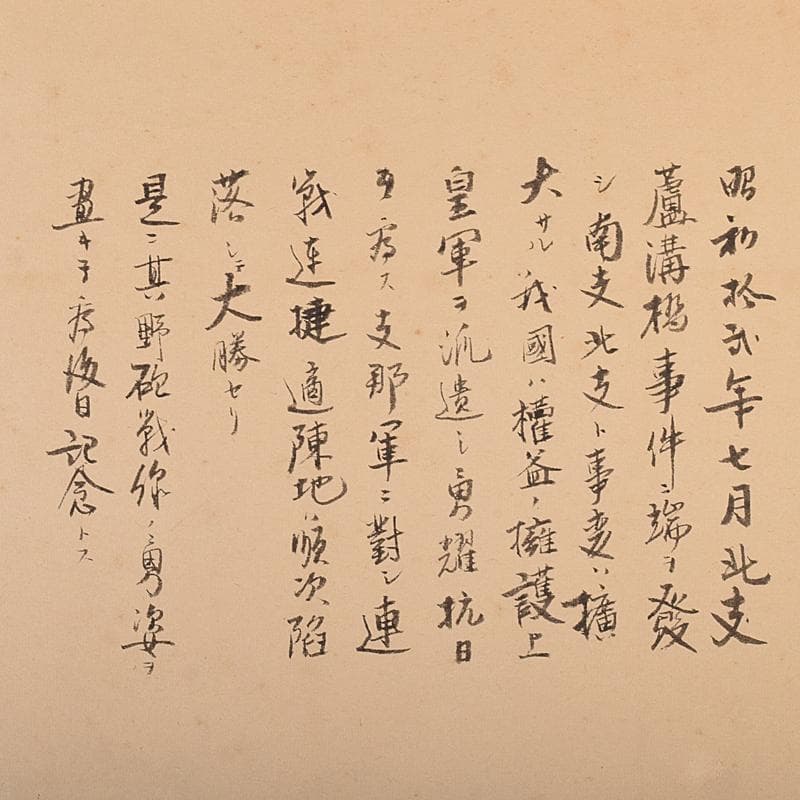 昭和拾弐年七月北支
蘆溝橋事件ニ端ヲ發
シ南支北支ト事変ハ擴
大サル我國ハ權益ノ擁護上
皇軍ヲ派遣シ勇耀抗日
ヲ為ス支那軍ニ對シ連
戦連捷適陳地順次陥
落シ大勝セリ
是ニ其ノ野砲戦線ノ勇姿ヲ
畫キテ為後日記念トス